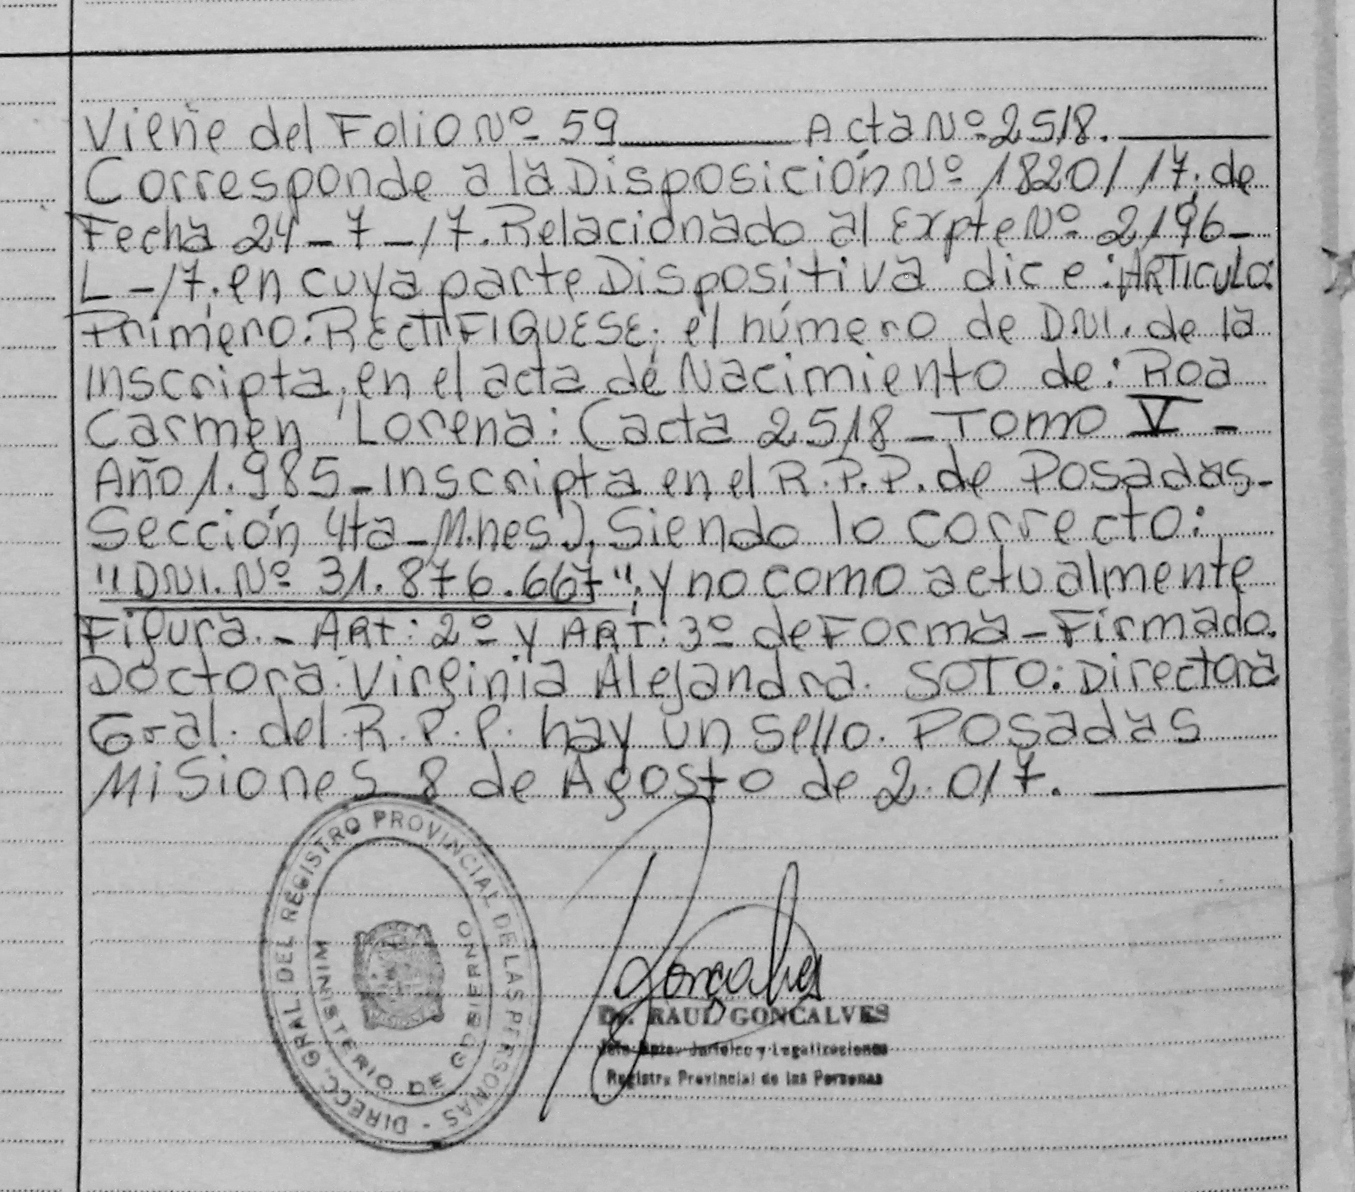 Viene del Folio Nº 59 Acta Nº 2518.
Corresponde a la Disposición Nº 1820/17. de
Fecha 24-7-17. Relacionado al Expte Nº 2196-
L-17. en cuya parte Dispositiva dice: ARTICULO
Primero: RECTIFIQUESE; el número de DNI. de la
inscripta, en el acta de Nacimiento de: Roa
Carmen Lorena: (acta 2518-Tomo V-
Año 1.985-inscripta en el R.P.P. de Posadas-
Sección 4ta-M.nes). Siendo lo correcto:
"DNI. Nº 31.876.667"; y no como actualmente
Figura.- ART: 2º y ART: 3º de Forma-Firmado.
Doctora Virginia Alejandra. SOTO: Directora
Gral. del R.P.P. hay un sello. Posadas
Misiones 8 de Agosto de 2.017.
DIRECC. GRAL. DEL REGISTRO PROVINCIAL DE LAS PERSONAS -
MINISTERIO DE GOBIERNO
Gonçalves
Dr. RAUL GONCALVES
Jefe Dpto. Jurídico y Legalizaciones
Registro Provincial de las Personas